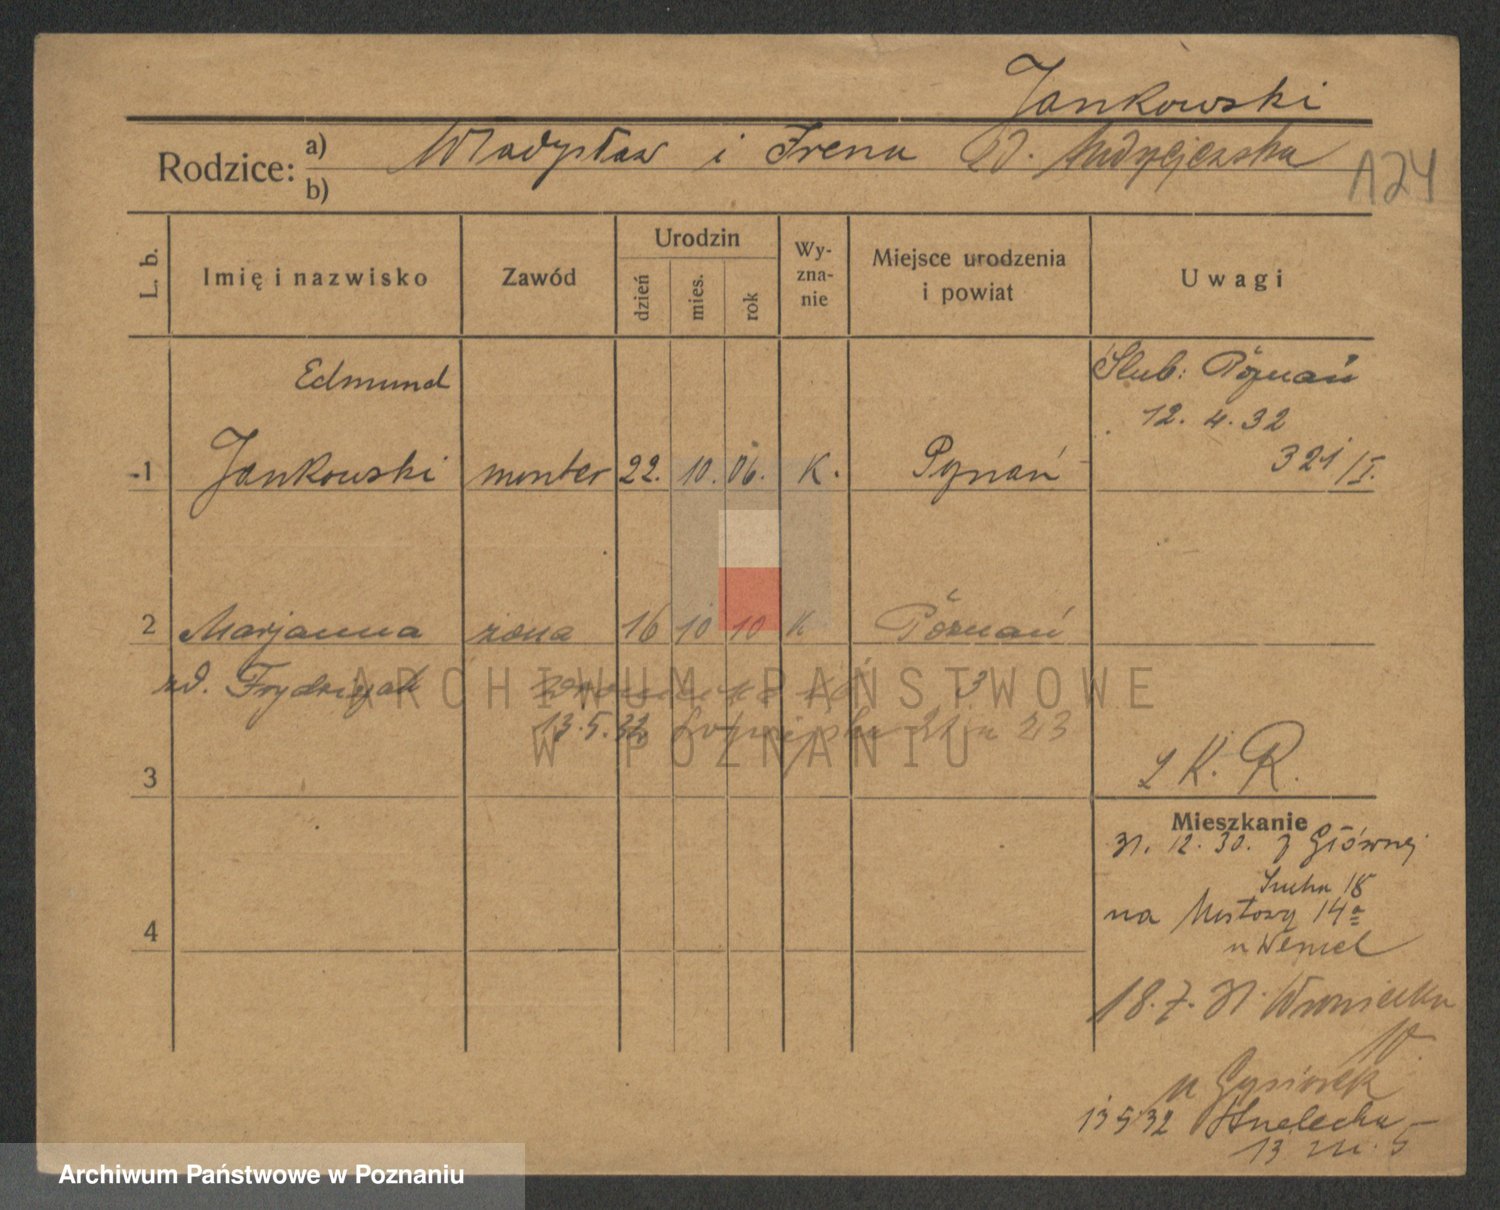 Jankowski
Rodzice: a) Władysław i Irena d.
b)
A24
L. b.
Imię i nazwisko
Zawód
Urodzin
dzień
mies.
rok
Wy-
zna-
nie
Miejsce urodzenia
i powiat
Uwagi
Edmund
Ślub: Poznań
12. 4. 32
321/I.
1 Jankowski monter 22. 10. 06. K. Poznań
2 Marjanna żona 16 10 10 K Poznań
zd. Frydrysiak
3
13.5.32 21 23
K. R.
3
Mieszkanie
31. 12. 30. z Głównej
Sucha 18
na 14a
u Wenzel
4
18. 7. 31. Wroniecka
10.
u Gąsiorek
13 5 32 Strzelecka
13 m. 5
ARCHIWUM PAŃSTWOWE
W POZNANIU
Archiwum Państwowe w Poznaniu